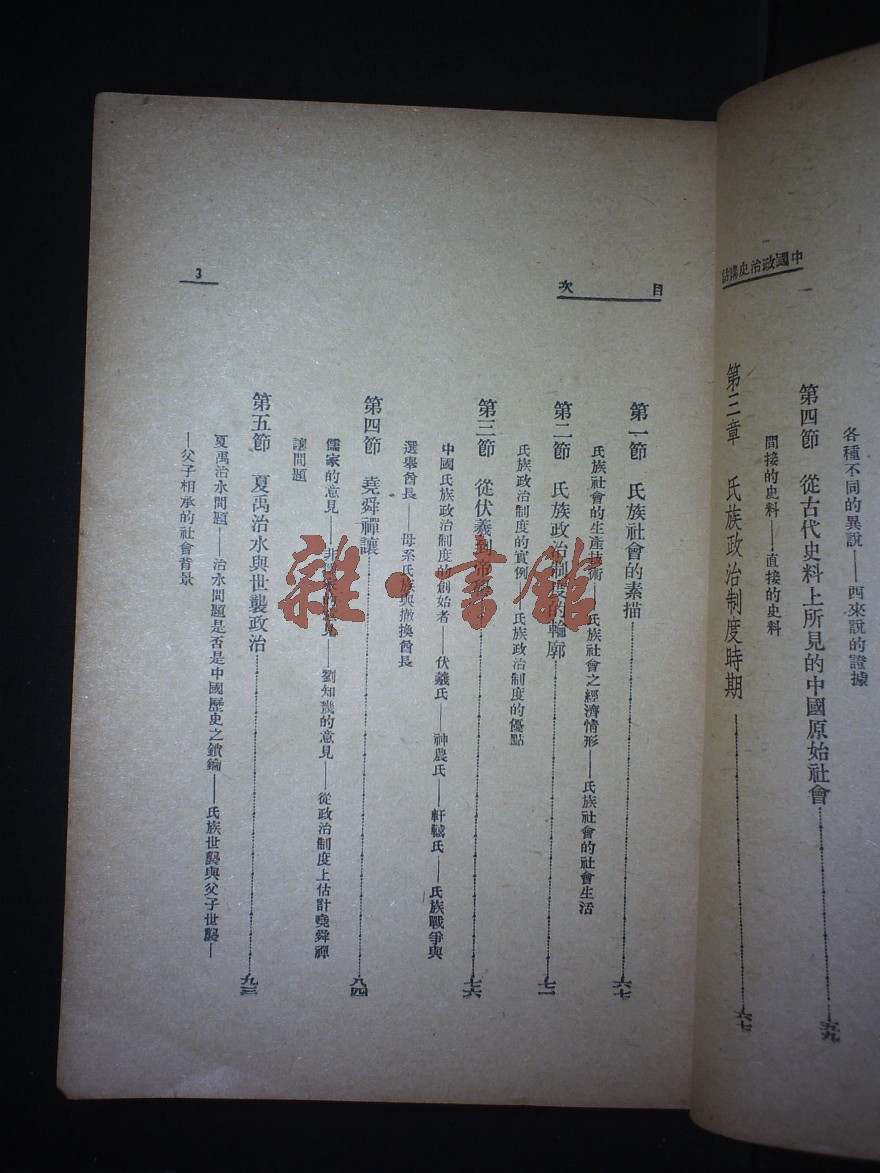 中國政治史講話
各種不同的異說——西來說的證據
第四節　從古代史料上所見的中國原始社會……五九
間接的史料——直接的史料
第三章　氏族政治制度時期……六七
目次
第一節　氏族社會的素描……六七
氏族社會的生產技術——氏族社會之經濟情形——氏族社會的社會生活
第二節　氏族政治制度的輪廓……七一
氏族政治制度的實例——氏族政治制度的優點
第三節　從伏羲到帝……七六
中國氏族政治制度的創始者——伏羲氏——神農氏——軒轅氏——氏族戰爭與
選舉酋長——母系氏族與撤換酋長
第四節　堯舜禪讓……八四
儒家的意見——非儒家的意見——劉知幾的意見——從政治制度上估計堯舜禪
讓問題
第五節　夏禹治水與世襲政治……九三
夏禹治水問題——治水問題是否是中國歷史之鎖鑰——氏族世襲與父子世襲—
—父子相承的社會背景
3
雜·書館